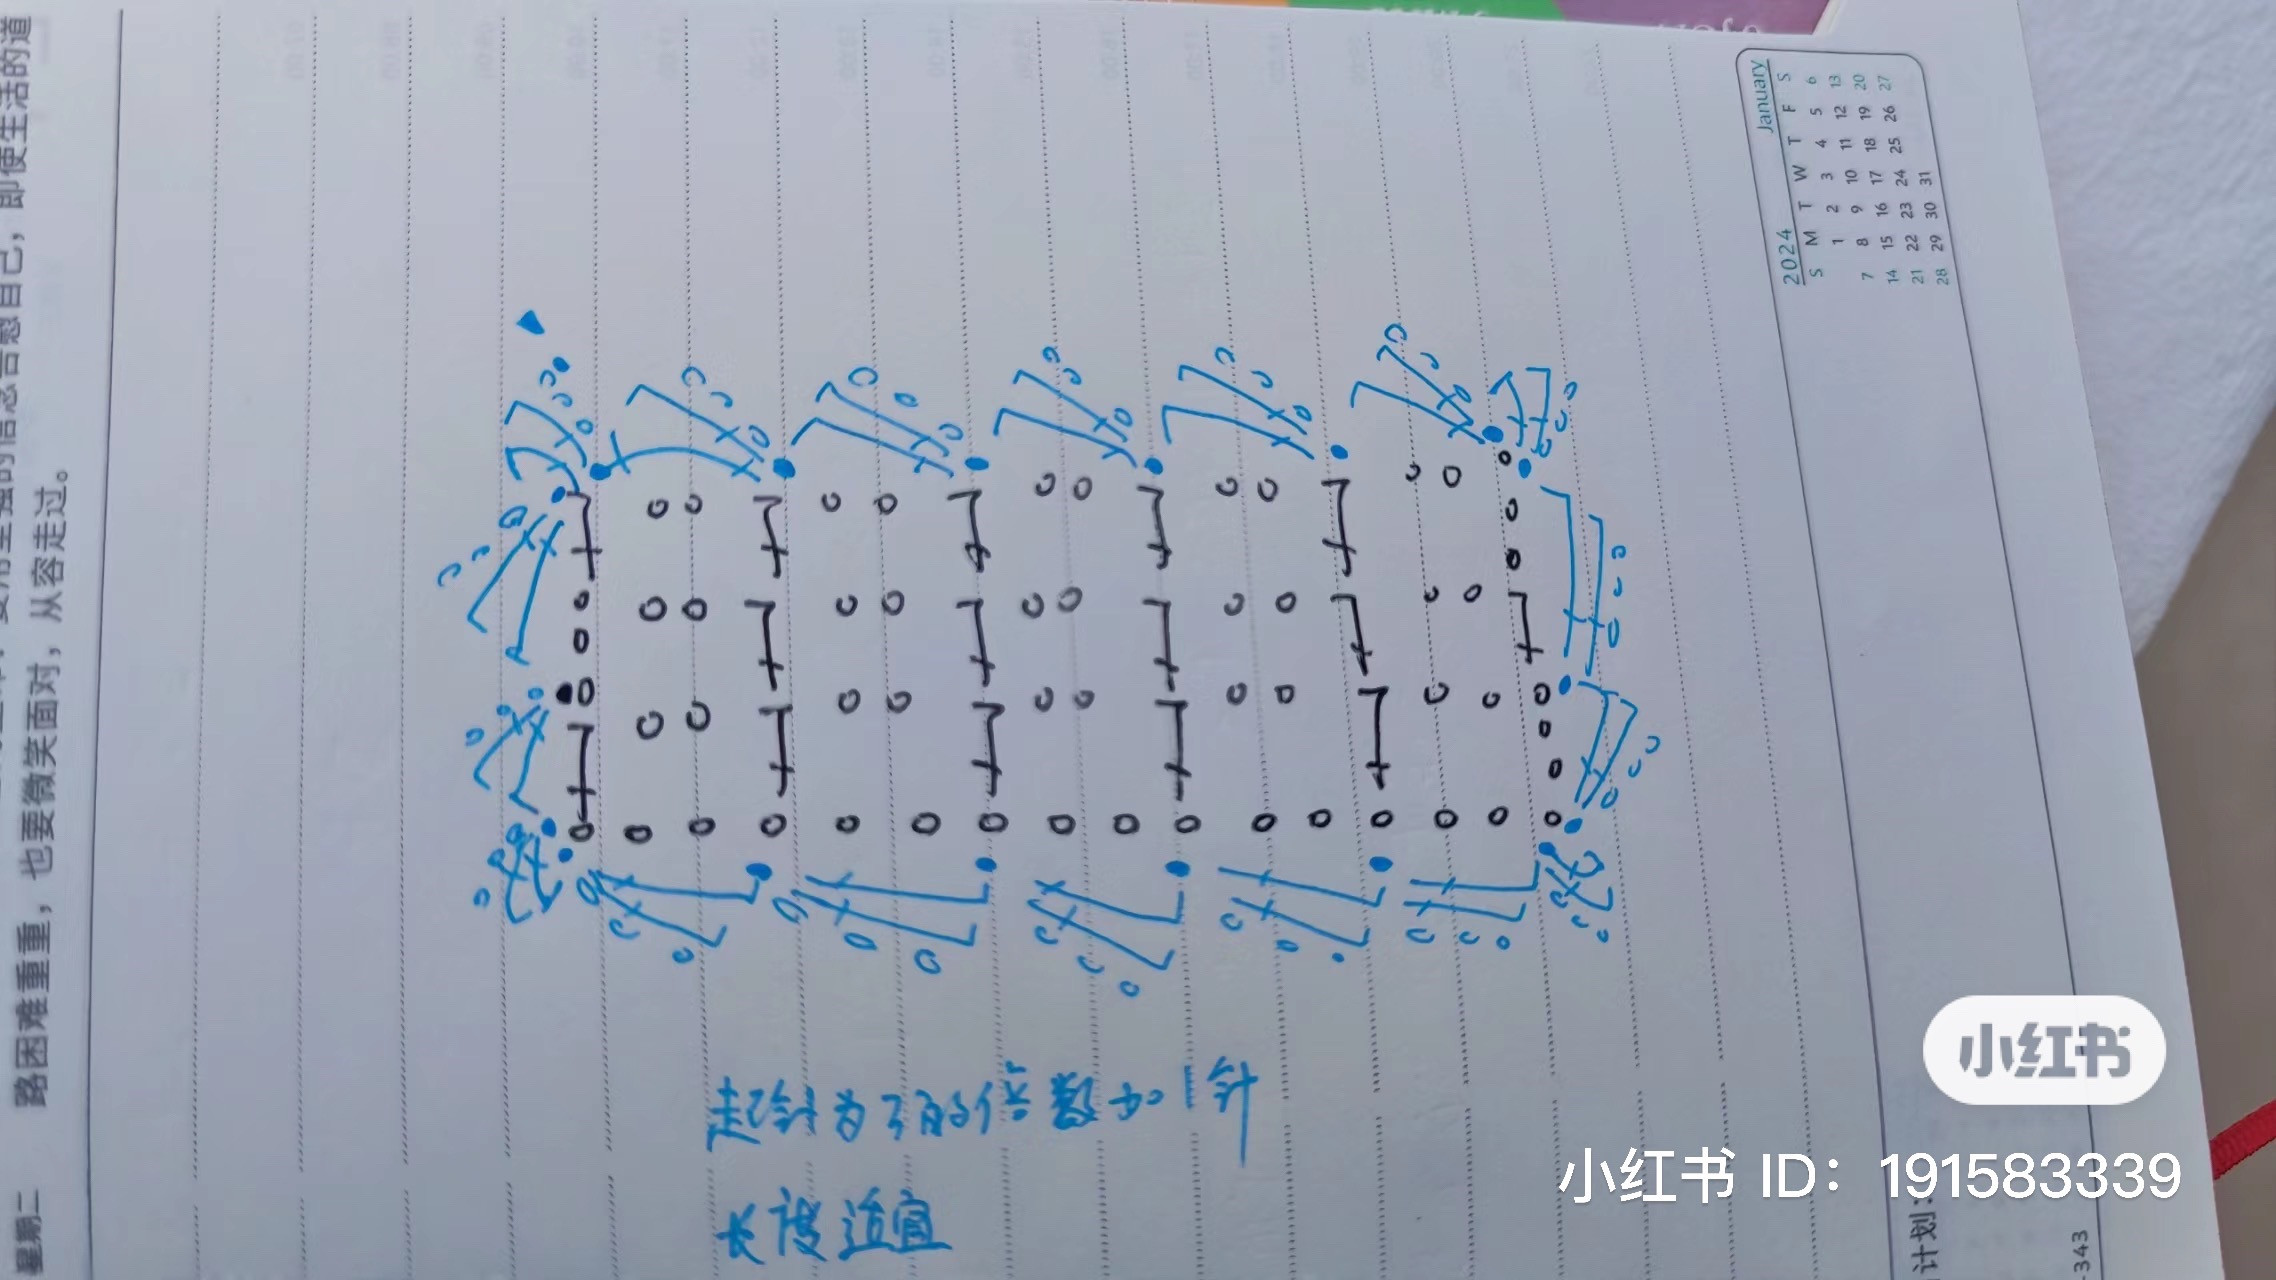 星期二
路困难重重，也要微笑面对，从容走过。
己，即使生活的道
2024 January
S M T W T F S
1 2 3 4 5 6
7 8 9 10 11 12 13
14 15 16 17 18 19 20
21 22 23 24 25 26 27
28 29 30 31
起针为3的倍数加1针
长度适宜
计划：
343
小红书
小红书 ID：191583339